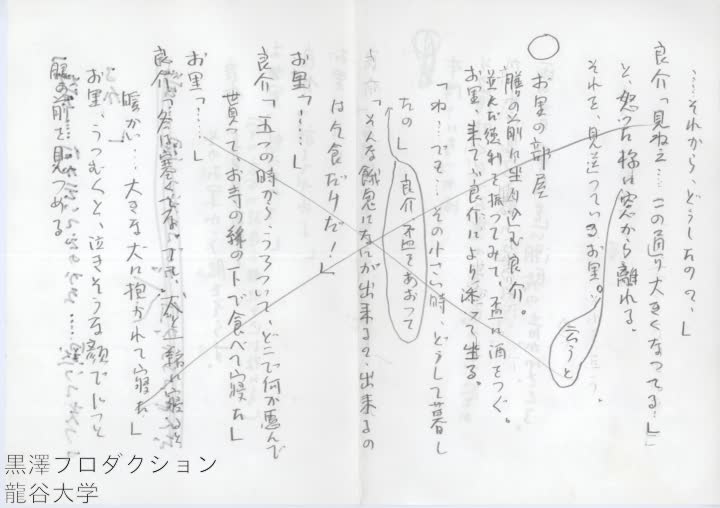 …それから、どうしたの？」
良介「見ねえ…この通り大きくなってる…」
と、怒った様に窓から離れる。
それを、見送っているお里。
云うと
○
お里の部屋
膳の前に坐り込む良介。
並んだ徳利を振ってみて、盃に酒をつぐ。
お里、来て、良介により添って坐る。
「ね…でも…その小さい時、どうして暮し
たの」
良介 盃をあおって
「そんな餓鬼になにが出来る？、出来るの
は乞食だけだ！」
お里「…」
良介「五つの時からうろついて、どこで何か恵んで
貰って、お寺の縁の下で食べて寝た」
お里「……」
良介「冬は寒くて
犬と一緒に寝ると
暖かい…大きな犬に抱かれて寝た」
お里、うつむくと、泣きそうな顔でじっと
膳の前を見つめる。
黒澤プロダクション
龍谷大学